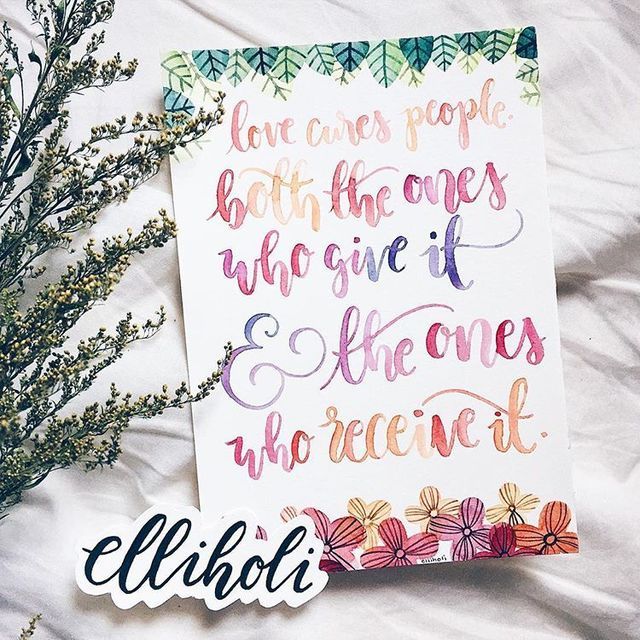 love cures people.
both the ones
who give it
& the ones
who receive it.
elliholi
elliholi